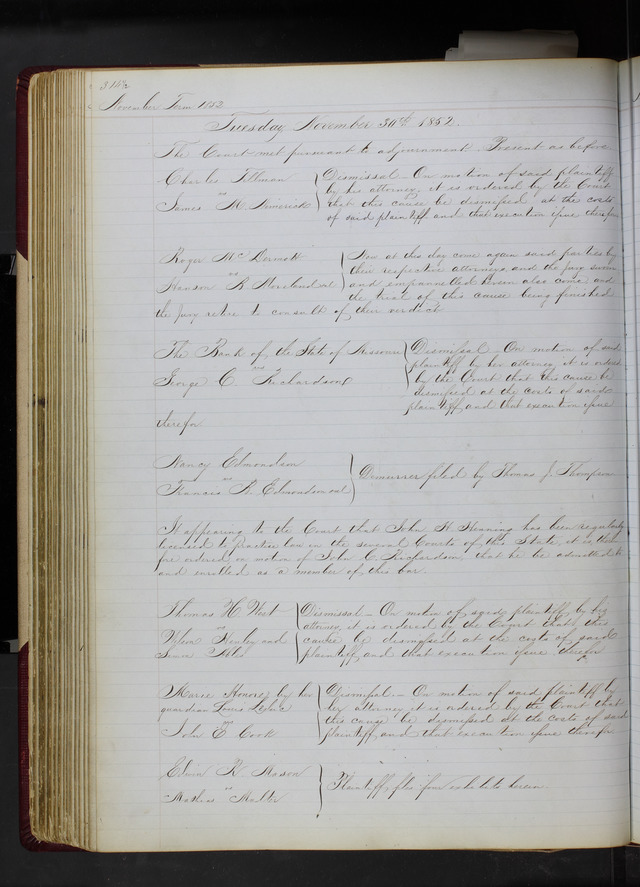 November Term 1852
Tuesday November 30th 1852.
The Court met pursuant to adjournment Present as before
Charles Ullman
vs
James M. Limerick
Dismissal - On motion of said plaintiff
by his attorney, it is ordered by the Court
that this cause be dismissed at the costs
of said plaintiff and that execution issue therefor
Roger McDermott
vs
Hanson R Moreland et al
Now at this day come again said parties by
their respective attorneys and the jury sworn
and empannelled herein also come and
the trial of this cause being finished
the jury retire to consult of their verdict
The Bank of the State of Missouri
vs
George C Richardson
Dismissal - On motion of said
plaintiff by her attorney it is ordered
by the Court that this cause be
dismissed at the costs of said
plaintiff, and that execution issue
therefor
Nancy Edmondson
vs
Francis R. Edmondson et al
Demurrer filed by Thomas J. Thompson
It appearing to the Court that John H Henning has been regularly
licensed to practice law in the several Courts of this State, it is there
fore ordered on motion of John C Richardson, that he be admitted to
and enrolled as a member of this bar
Thomas H West
vs
and
Dismissal - On motion of said plaintiff by his
attorney, it is ordered by the Court that this
cause be dismissed at the costs of said
plaintiff, and that execution issue therefor
Marie Honore by her
guardian Louis
vs
John E Cook
Dismissal - On motion of said plaintiff by
her attorney it is ordered by the Court that
this cause be dismissed at the costs of said
plaintiff, and that execution issue therefor
Edwin R Mason
vs
Plaintiff files four exhibits herein